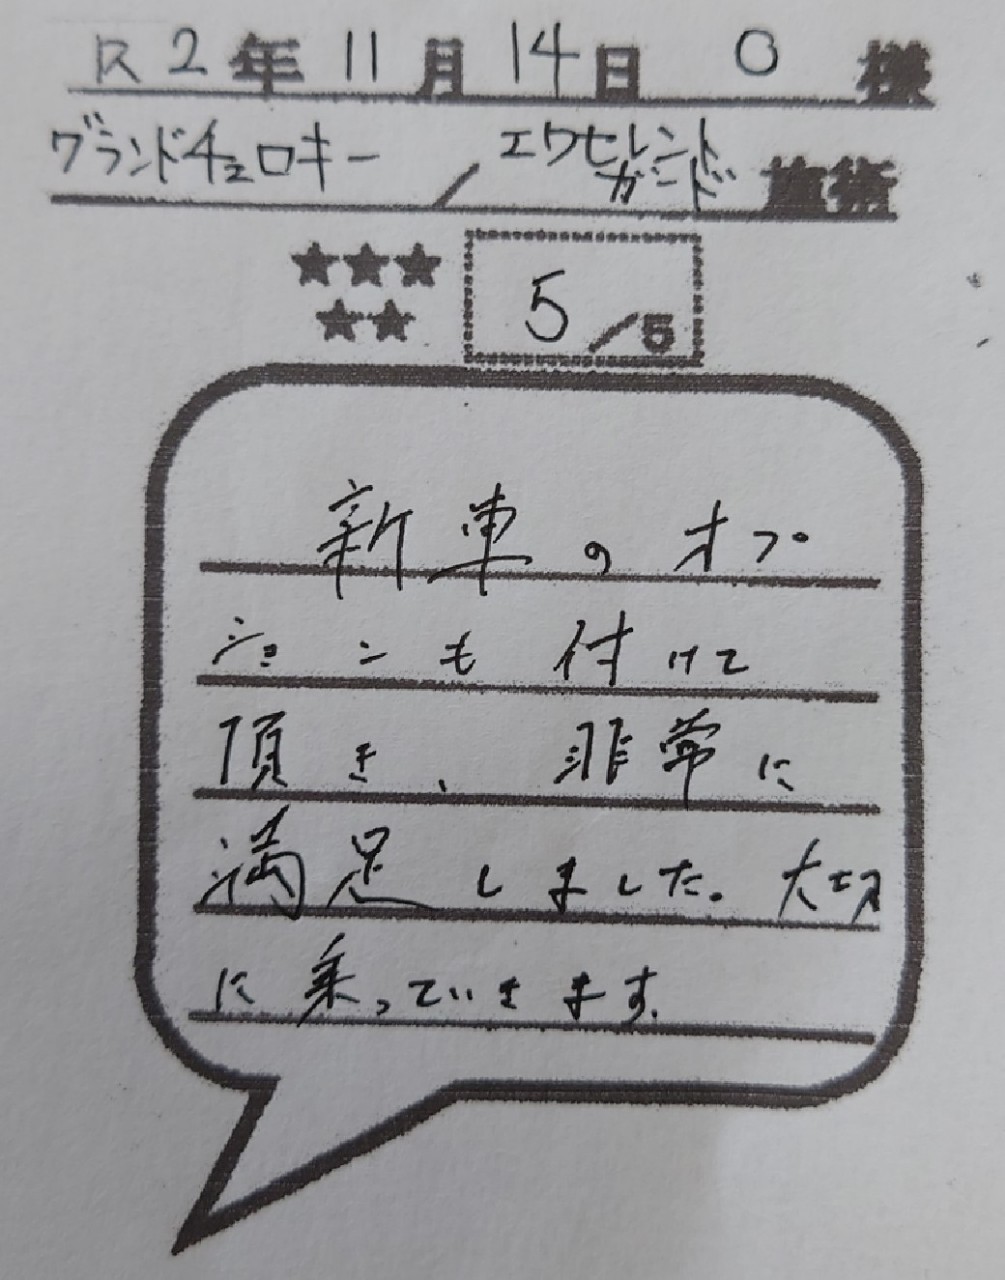 R2年11月14日 O 様
グランドチェロキー / エクセレント
ガード 施術
★★★
★★
5/5
新車のオプ
ションも付けて
頂き、非常に
満足しました。大切
に乗っていきます。